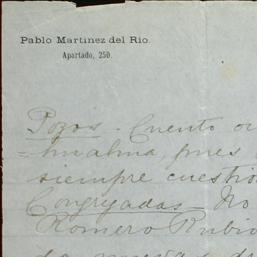 Pablo Martinez del Rio.
Apartado, 250.
Pozos - Cuento
mi alma, pues
siempre cuestio
Congregadas - No
Romero Rubio